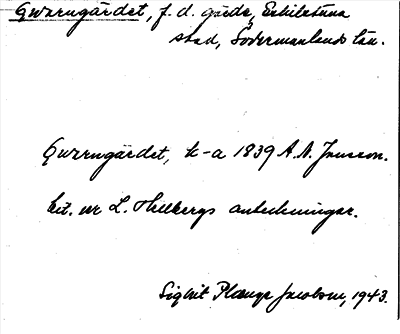 Qwarngärdet, f. d. gärde, Eskilstuna
stad, Södermanlands län.
Qwarngärdet, k-a 1839 A. N. Jonsson.
Exc. ur L. Hellbergs anteckningar.
Sigbrit Plænge Jacobson, 1943.